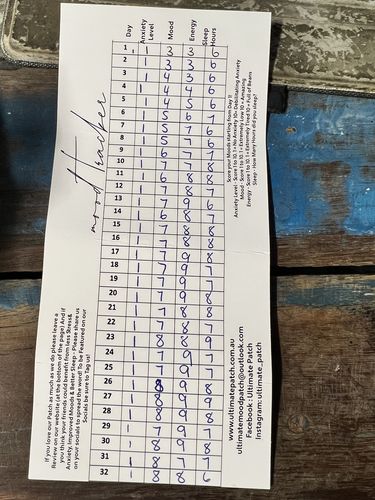 mood tracker
Day Anxiety Level Mood Energy Sleep Hours
1 1 3 3 6
2 1 3 3 6
3 1 4 3 6
4 1 4 4 6
5 1 4 5 6
6 1 5 6 7
7 1 5 7 6
8 1 5 7 6
9 1 6 7 7
10 1 7 7 8
11 1 6 8 8
12 1 7 8 7
13 1 7 9 6
14 1 6 8 7
15 1 7 8 8
16 1 7 8 8
17 1 7 9 8
18 1 7 9 7
19 1 7 9 7
20 1 7 9 8
21 1 7 8 8
22 1 7 8 7
23 1 8 8 9
24 1 7 9 7
25 1 7 9 7
26 1 8 9 8
27 1 8 9 9
28 1 8 9 8
29 1 7 9 7
30 1 8 9 8
31 1 8 7 7
32 1 8 8 6
Score your Moods starting from Day 1!
Anxiety Level - Score 1 to 10. 1 = No Anxiety 10= Debilitating Anxiety
Mood - Score 1 to 10. 1 = Extremely Low 10 = Amazing
Energy - Score 1 to 10. 1= Extremely Tired 10 = Full of Beans
Sleep - How Many Hours did you sleep?
If you love our Patch as much as we do please leave a
Review on our website (at the bottom of the page) And if
you think your friends could benefit from less Stress&
Anxiety, Improved Moods & Better Sleep - Please share us
on your socials to spread the word! To be Featured on our
Socials be sure to Tag us!
www.ultimatepatch.com.au
ultimatemoodpatch@outlook.com
Facebook: Ultimate Patch
Instagram: ultimate_patch